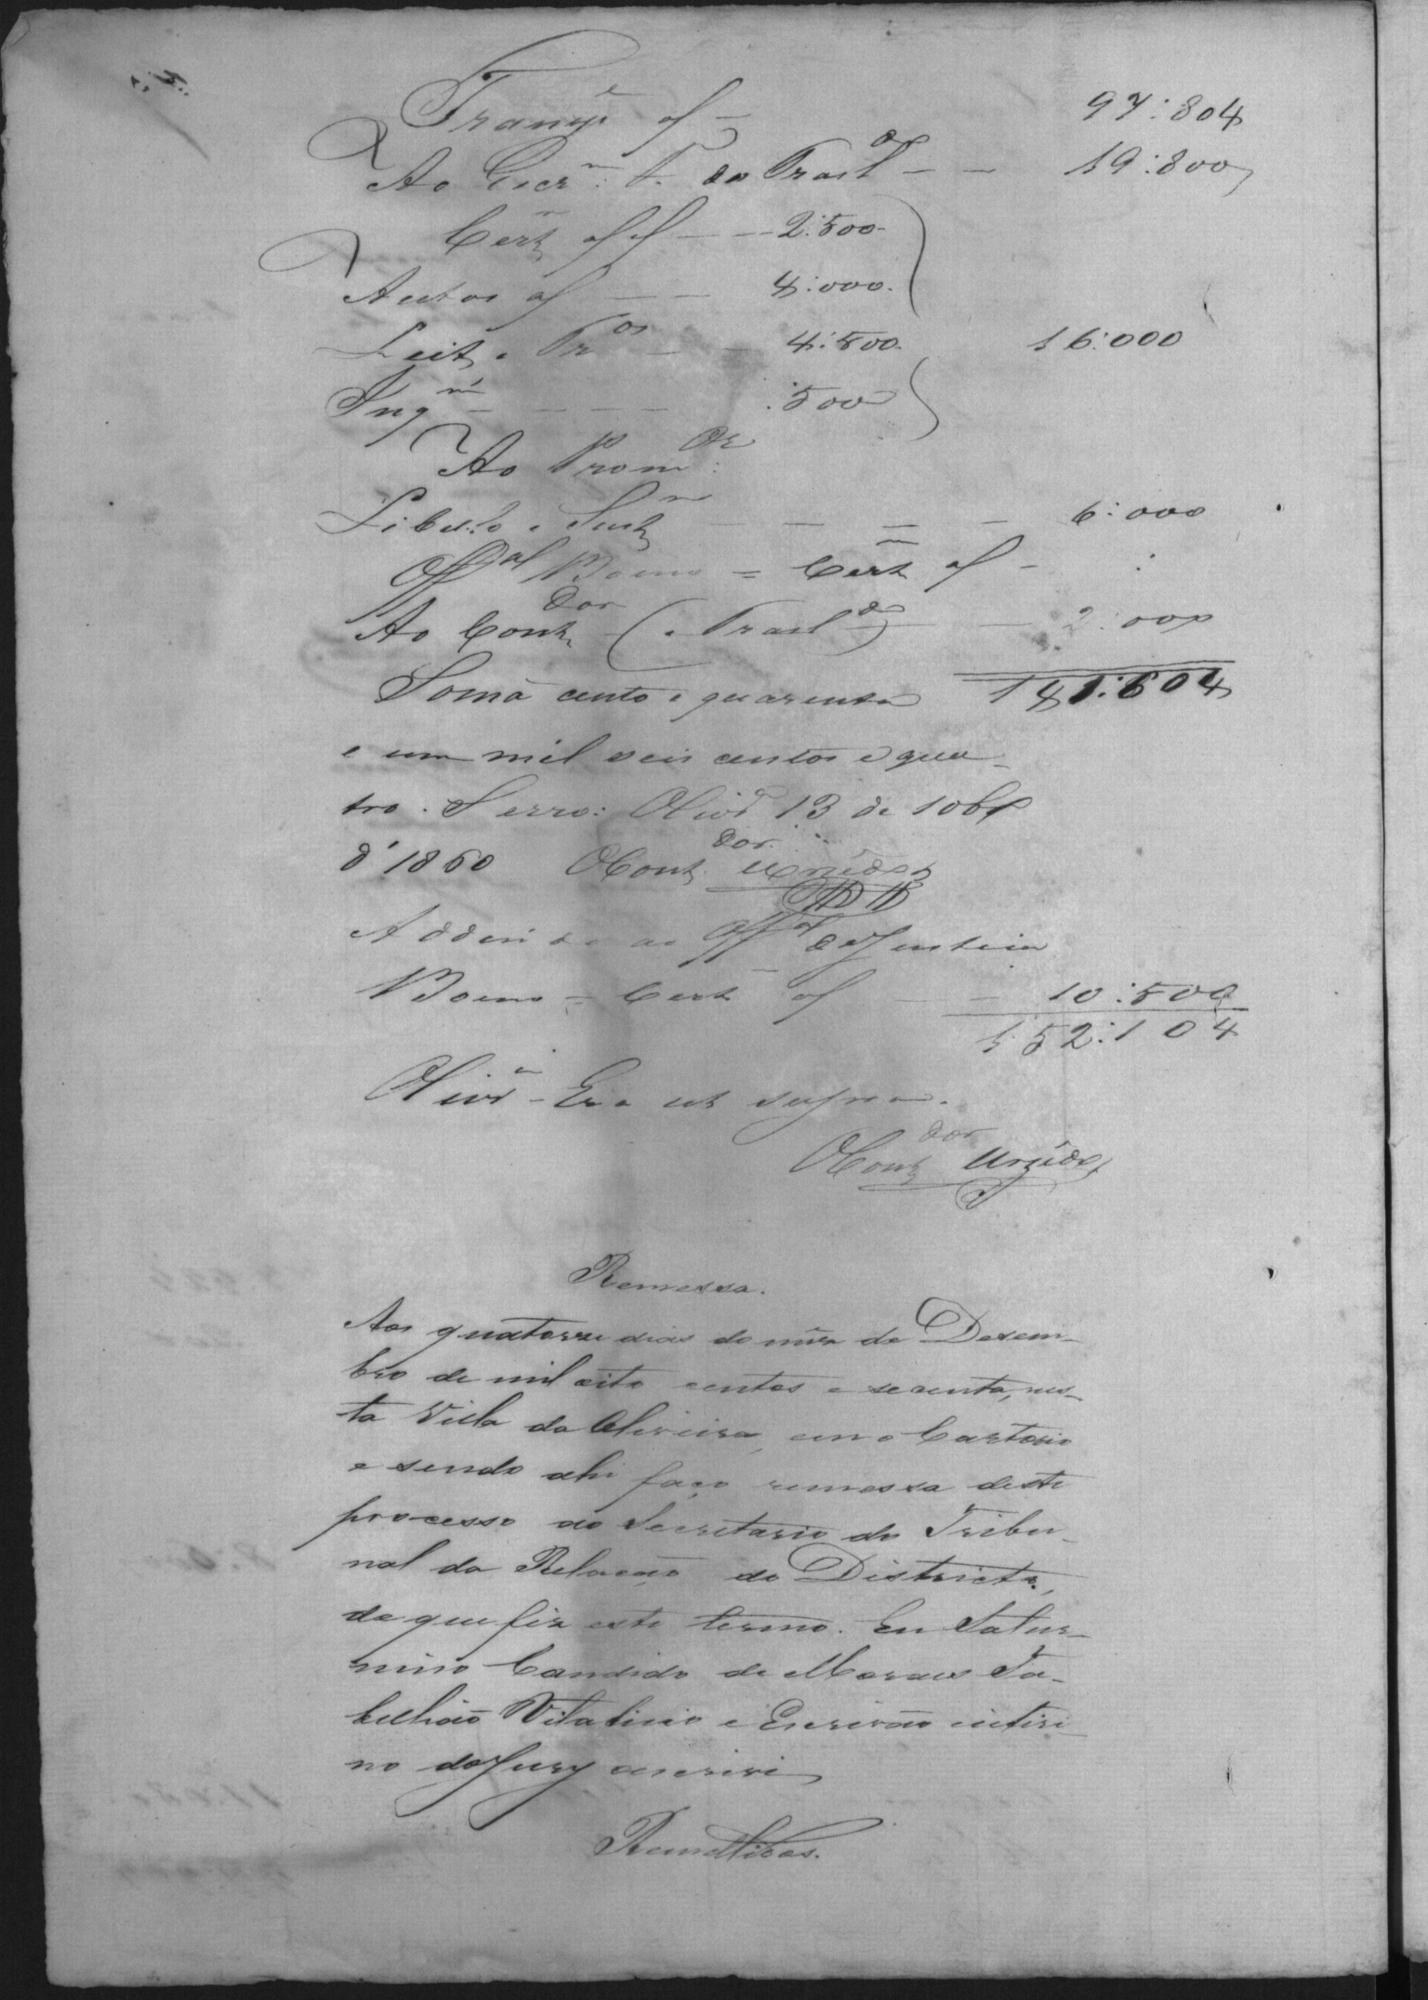 Transpe af — 97:804
Ao Escrm: P. do Trasldo — — 19:800
Certm af af — — 2:500
Autos af — — 4:000
Leit e Pros — — 4:500 16:000
Ing — — — — :500
Ao Promor:
Libello e Sustm — — — 6:000
Offal Bueno = Certm af —
Ao Contdor (e Trasldo) — 2:000
Soma cento e quarenta 141:604
e um mil seis centos e qua-
tro. Serro: Olivra 13 de 10bro
d'1860 O Contdor
Addem ao Offal de Justiça
Bueno = Cert af — — 10:500
152:104
Olivra - Era ut supra.
O Contdor
Remessa.
Aos quatorze dias do mez de Dezem-
bro de mil oito centos e secenta, nes-
ta Villa da Oliveira, em o Cartorio
e sendo ahi faço remessa deste
processo ao Secretario do Tribu-
nal da Relação do Districto,
do que fiz este termo. Eu Satur-
nino Candido de Moraes Ta-
bellião Vitalicio e Escrivão interi-
no do Jury escrevi
Remettidos.